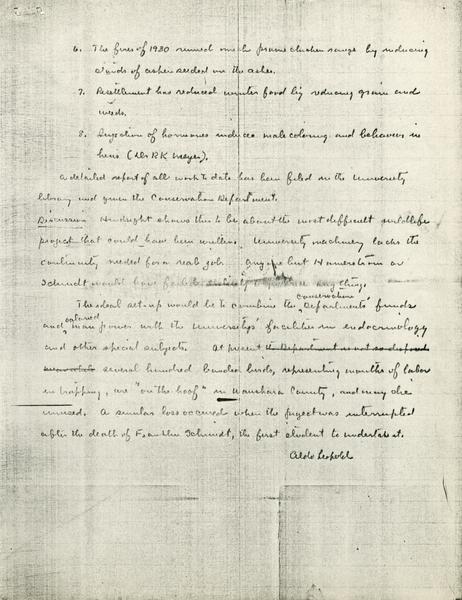 6. The fires of 1930 ruined much prairie chicken range by reducing
clouds of aspen seeded on the ashes.
7. Resettlement has reduced winter food by reducing grain and
weeds.
8. Injection of hormones induces male coloring and behavior in
hens (Dr RK Meyer).
A detailed report of all work to date has been filed in the University
library and given the Conservation Department.
Discussion Hindsight shows this to be about the most difficult wildlife
project that could have been undertaken. University machinery lacks the
continuity needed for a real job. Anyone but Hamerstrom or
Schmidt would have failed to anything.
The ideal set-up would be to combine the conservation Departments' funds
and man power with the Universitys' facilities in endocrinology
and other special subjects. At present the Department is not so disposed
several hundred banded birds, representing months of labor
in trapping, are "on the hoof" in Waushara County, and may die
unused. A similar loss occurred when the project was interrupted
after the death of Franklin Schmidt, the first student to undertake it.
Aldo Leopold